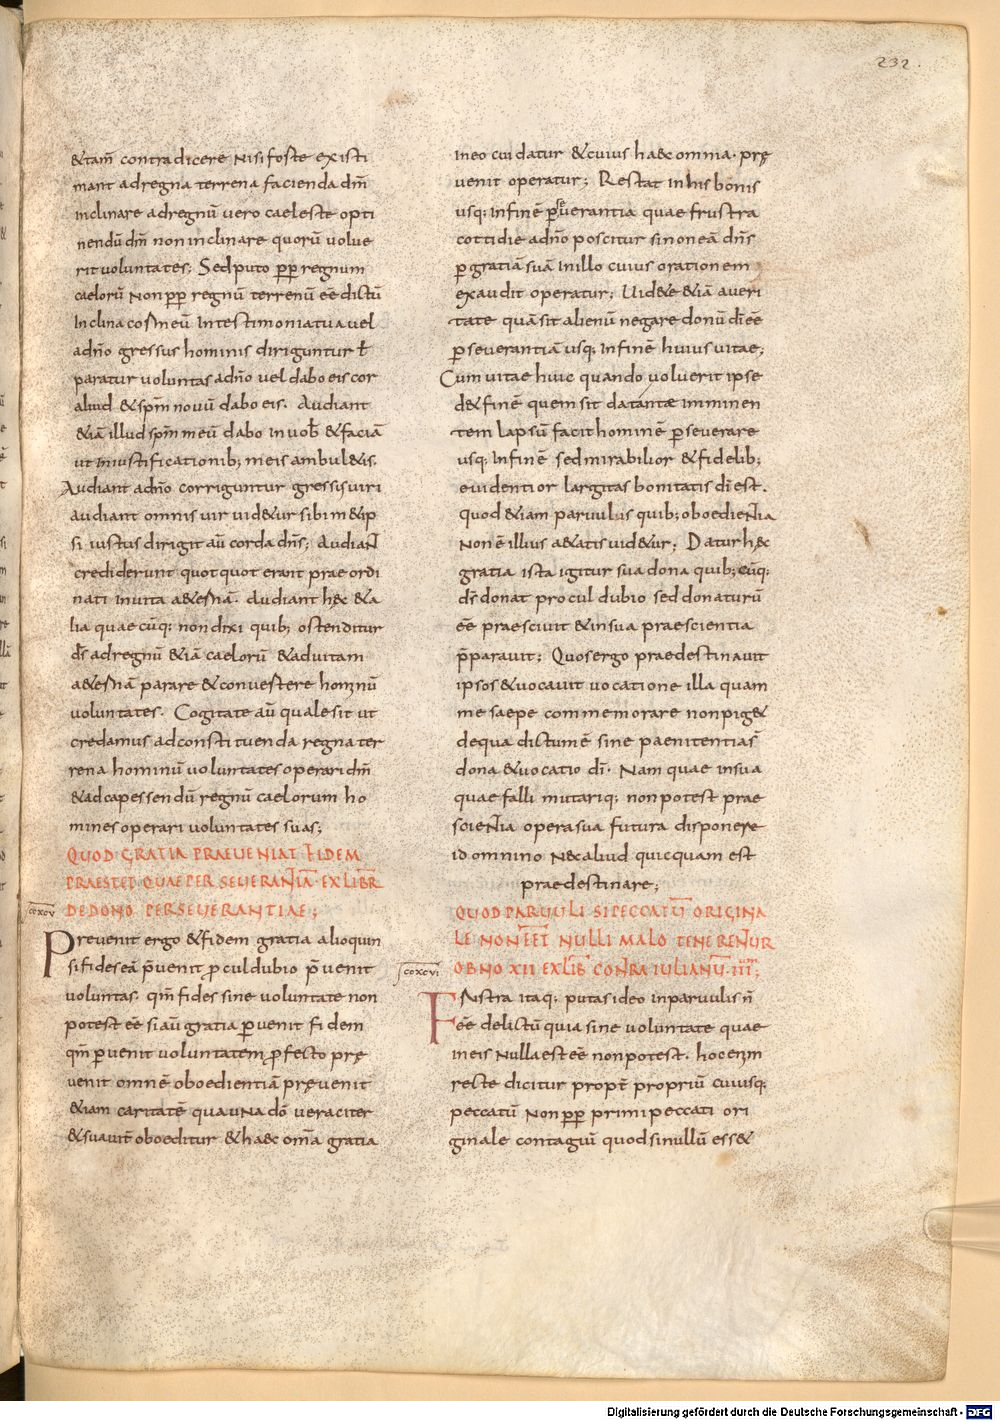 232.
&tam̄ contradicere nisi foste existi
mant ad regna terrena facienda dm̄
inclinare ad regnū vero caeleste opti
nendū dm̄ non inclinare quorū volue
rit voluntates; Sed puto ꝓꝑ regnum
caelorū non ꝓꝑ regnū terrenū eē dictū
Inclina cor meū In testimonia tua vel
adn̄o gressus hominis diriguntur ł
paratur voluntas adn̄o vel dabo eis cor
aliud & spm̄ novū dabo eis. Audiant
&iā illud spm̄ meū dabo In vob̄ & faciā
ut In iustificationib; meis ambul&is.
Audiant adn̄o corriguntur gressis viri
audiant omnis vir vid&ur sibi m&ip
si iustus dirigit aū corda dn̄s; Audiant
crediderunt quotquot erant praeordi
nati In vita a&ernā. Audiant h&c &a
lia quae cūq; non dixi quib; ostenditur
ds̄ ad regnū &iā caelorū & ad vitam
a&ernā parare & convertere hominū
voluntates. Cogitate aū quale sit ut
credamus ad constituenda regna ter
rena hominū voluntates operari dm̄
& ad capessendū regnū caelorum ho
mines operari voluntates suas;
QUOD GRATIA PRAEVENIAT FIDEM
PRAESTET QUAE PERSEVERANTIĀ. EX LIBR
ccxcv DE DONO PERSEVERANTIAE;
Prevenit ergo & fidem gratia alioquin
si fides eā p̄venit procul dubio p̄venit
voluntas. qm̄ fides sine voluntate non
potest eē si aū gratia p̄venit fidem
qm̄ p̄venit voluntatem ꝓfecto pre
venit omnē oboedientiā prevenit
&iam caritatē qua una dō veraciter
& suavit̄ oboeditur & haec om̄a gratia
In eo cui datur & cuius haec omnia. prę
venit operatur; Restat In his bonis
usq; In finē ꝑseverantia quae frustra
cottidie adn̄o poscitur si non eā dn̄s
ꝑ gratiā suā In illo cuius orationem
exaudit operatur; Vid&e &iā a veri
tate quā sit alienū negare donū dī eē
ꝑseverantiā usq; In finē huius vitae;
Cum vitae huic quando voluerit ipse
d& finē quem si dat ante imminen
tem lapsū facit hominē ꝑseverare
usq; In finē sed mirabilior & fidelib;
evidentior largitas bonitatis dī est.
quod &iam parvulis quib; oboedientia
non ē illius a&atis vid&ur; Datur h&c
gratia ista igitur sua dona quib; cūq;
ds̄ donat procul dubio se donaturū
eē praescivit & in sua praescientia
p̄paravit; Quos ergo praedestinavit
ipsos & vocavit vocatione illa quam
me saepe commemorare non pig&
de qua dictum ē sine paenitentia s̄
dona & vocatio dī. Nam quae In sua
quae falli mutariq; non potest prae
scientia opera sua futura disponere
id omnino nec aliud quicquam est
praedestinare;
QUOD PARVULI SI PECCATŪ ORIGINA
LE NON EĒT NULLI MALO TENERENTUR
ccxcvi OBNOXII EX LIB̄ CONTRA IULIANŪ. III;
Frustra itaq; putas ideo in parvulis n̄
eē delictū quia sine voluntate quae
In eis nulla est eē non potest. hoc enim
recte dicitur propt̄ propriū cuiusq;
peccatū non ꝓꝑ primi peccati ori
ginale contagiū quod si nullū ess&
Digitalisierung gefördert durch die Deutsche Forschungsgemeinschaft - DFG